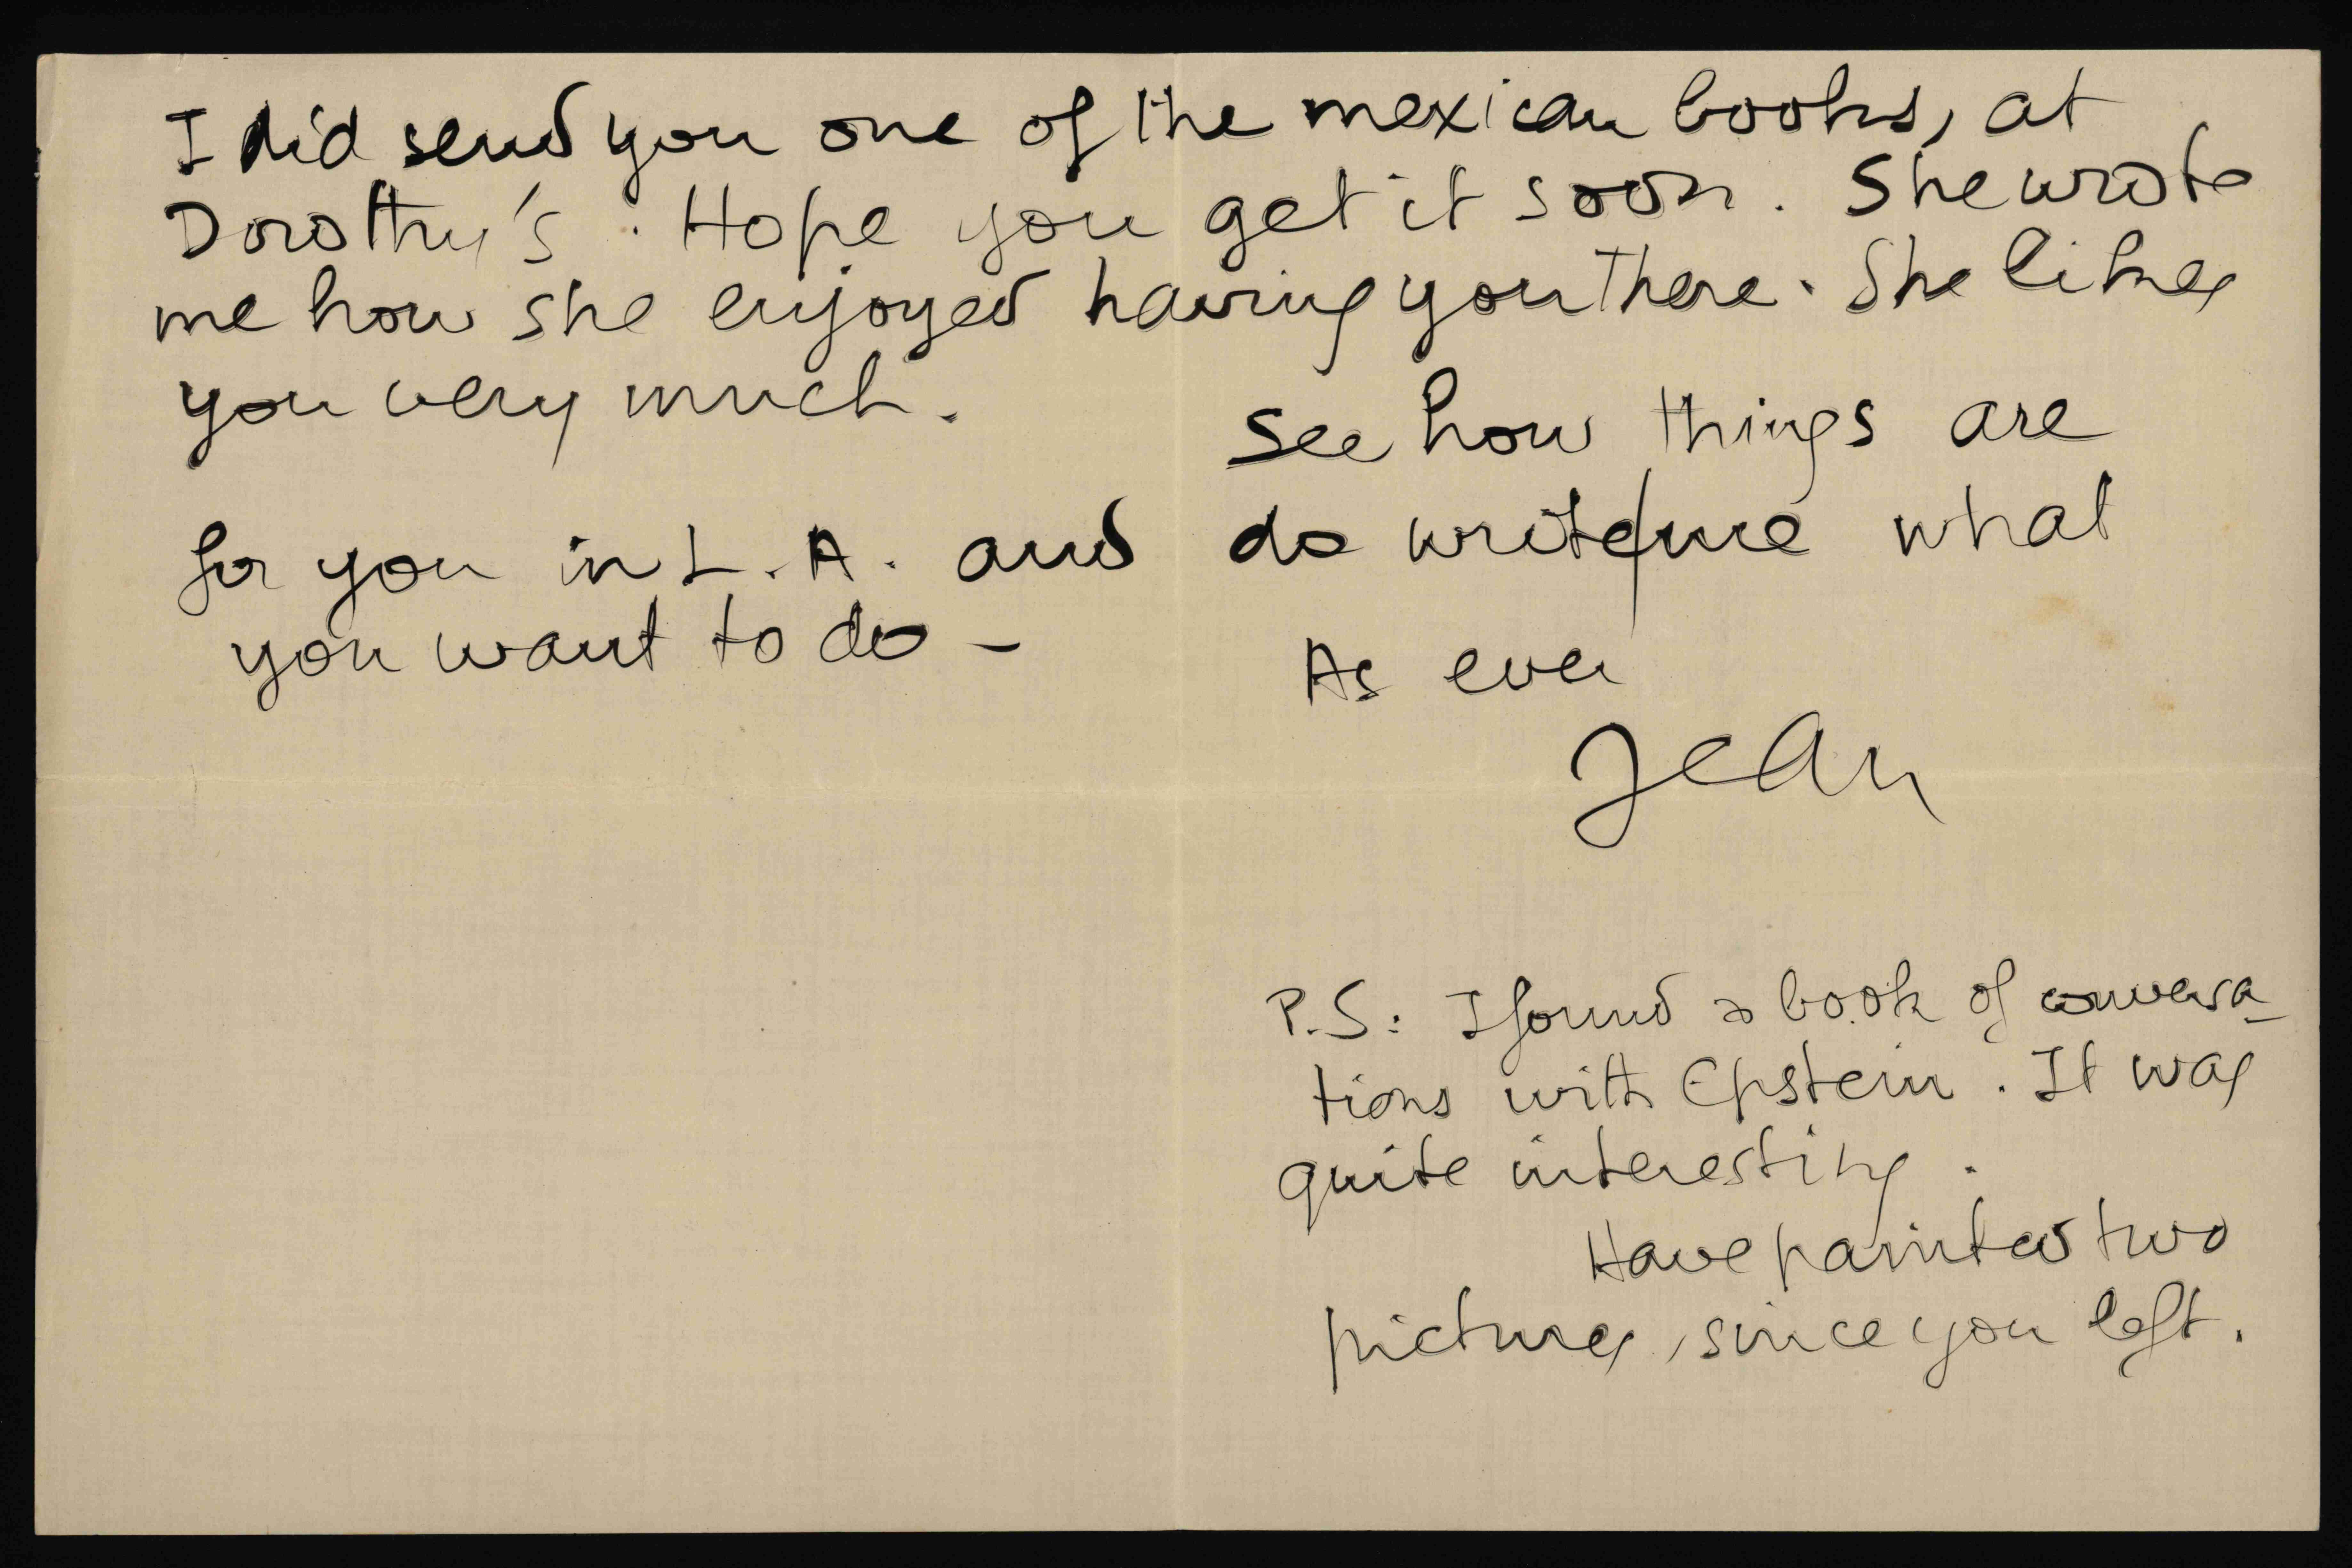 I did send you one of the mexican books, at
Dorothy's. Hope you get it soon. She wrote
me how she enjoyed having you there. She likes
you very much.
See how things are
for you in L.A. and do write me what
you want to do –
As ever
Jean
P.S: I found a book of conversa-
tions with Epstein. It was
quite interesting.
Have painted two
pictures, since you left.